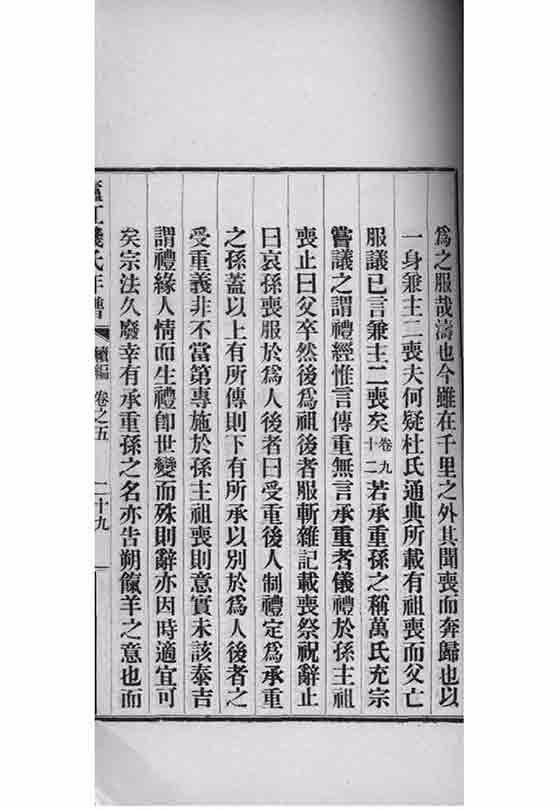 為之服哉濤也今雖在千里之外其聞喪而奔歸也以
一身兼主二喪夫何疑杜氏通典所載有祖喪而父亡
服議已言兼主二喪矣卷九十二若承重孫之稱萬氏充宗
嘗議之謂禮經惟言傳重無言承重者儀禮於孫主祖
喪止曰父卒然後為祖後者服斬雜記載喪祭祝辭止
曰哀孫喪服於為人後者曰受重後人制禮定為承重
之孫蓋以上有所傳則下有所承以別於為人後者之
受重義非不當第專施於孫主祖喪則意實未該泰吉
謂禮緣人情而生禮卽世變而殊則辭亦因時適宜可
矣宗法久廢幸有承重孫之名亦告朔餼羊之意也而
廬江錢氏年譜 續編 卷之五 二十九